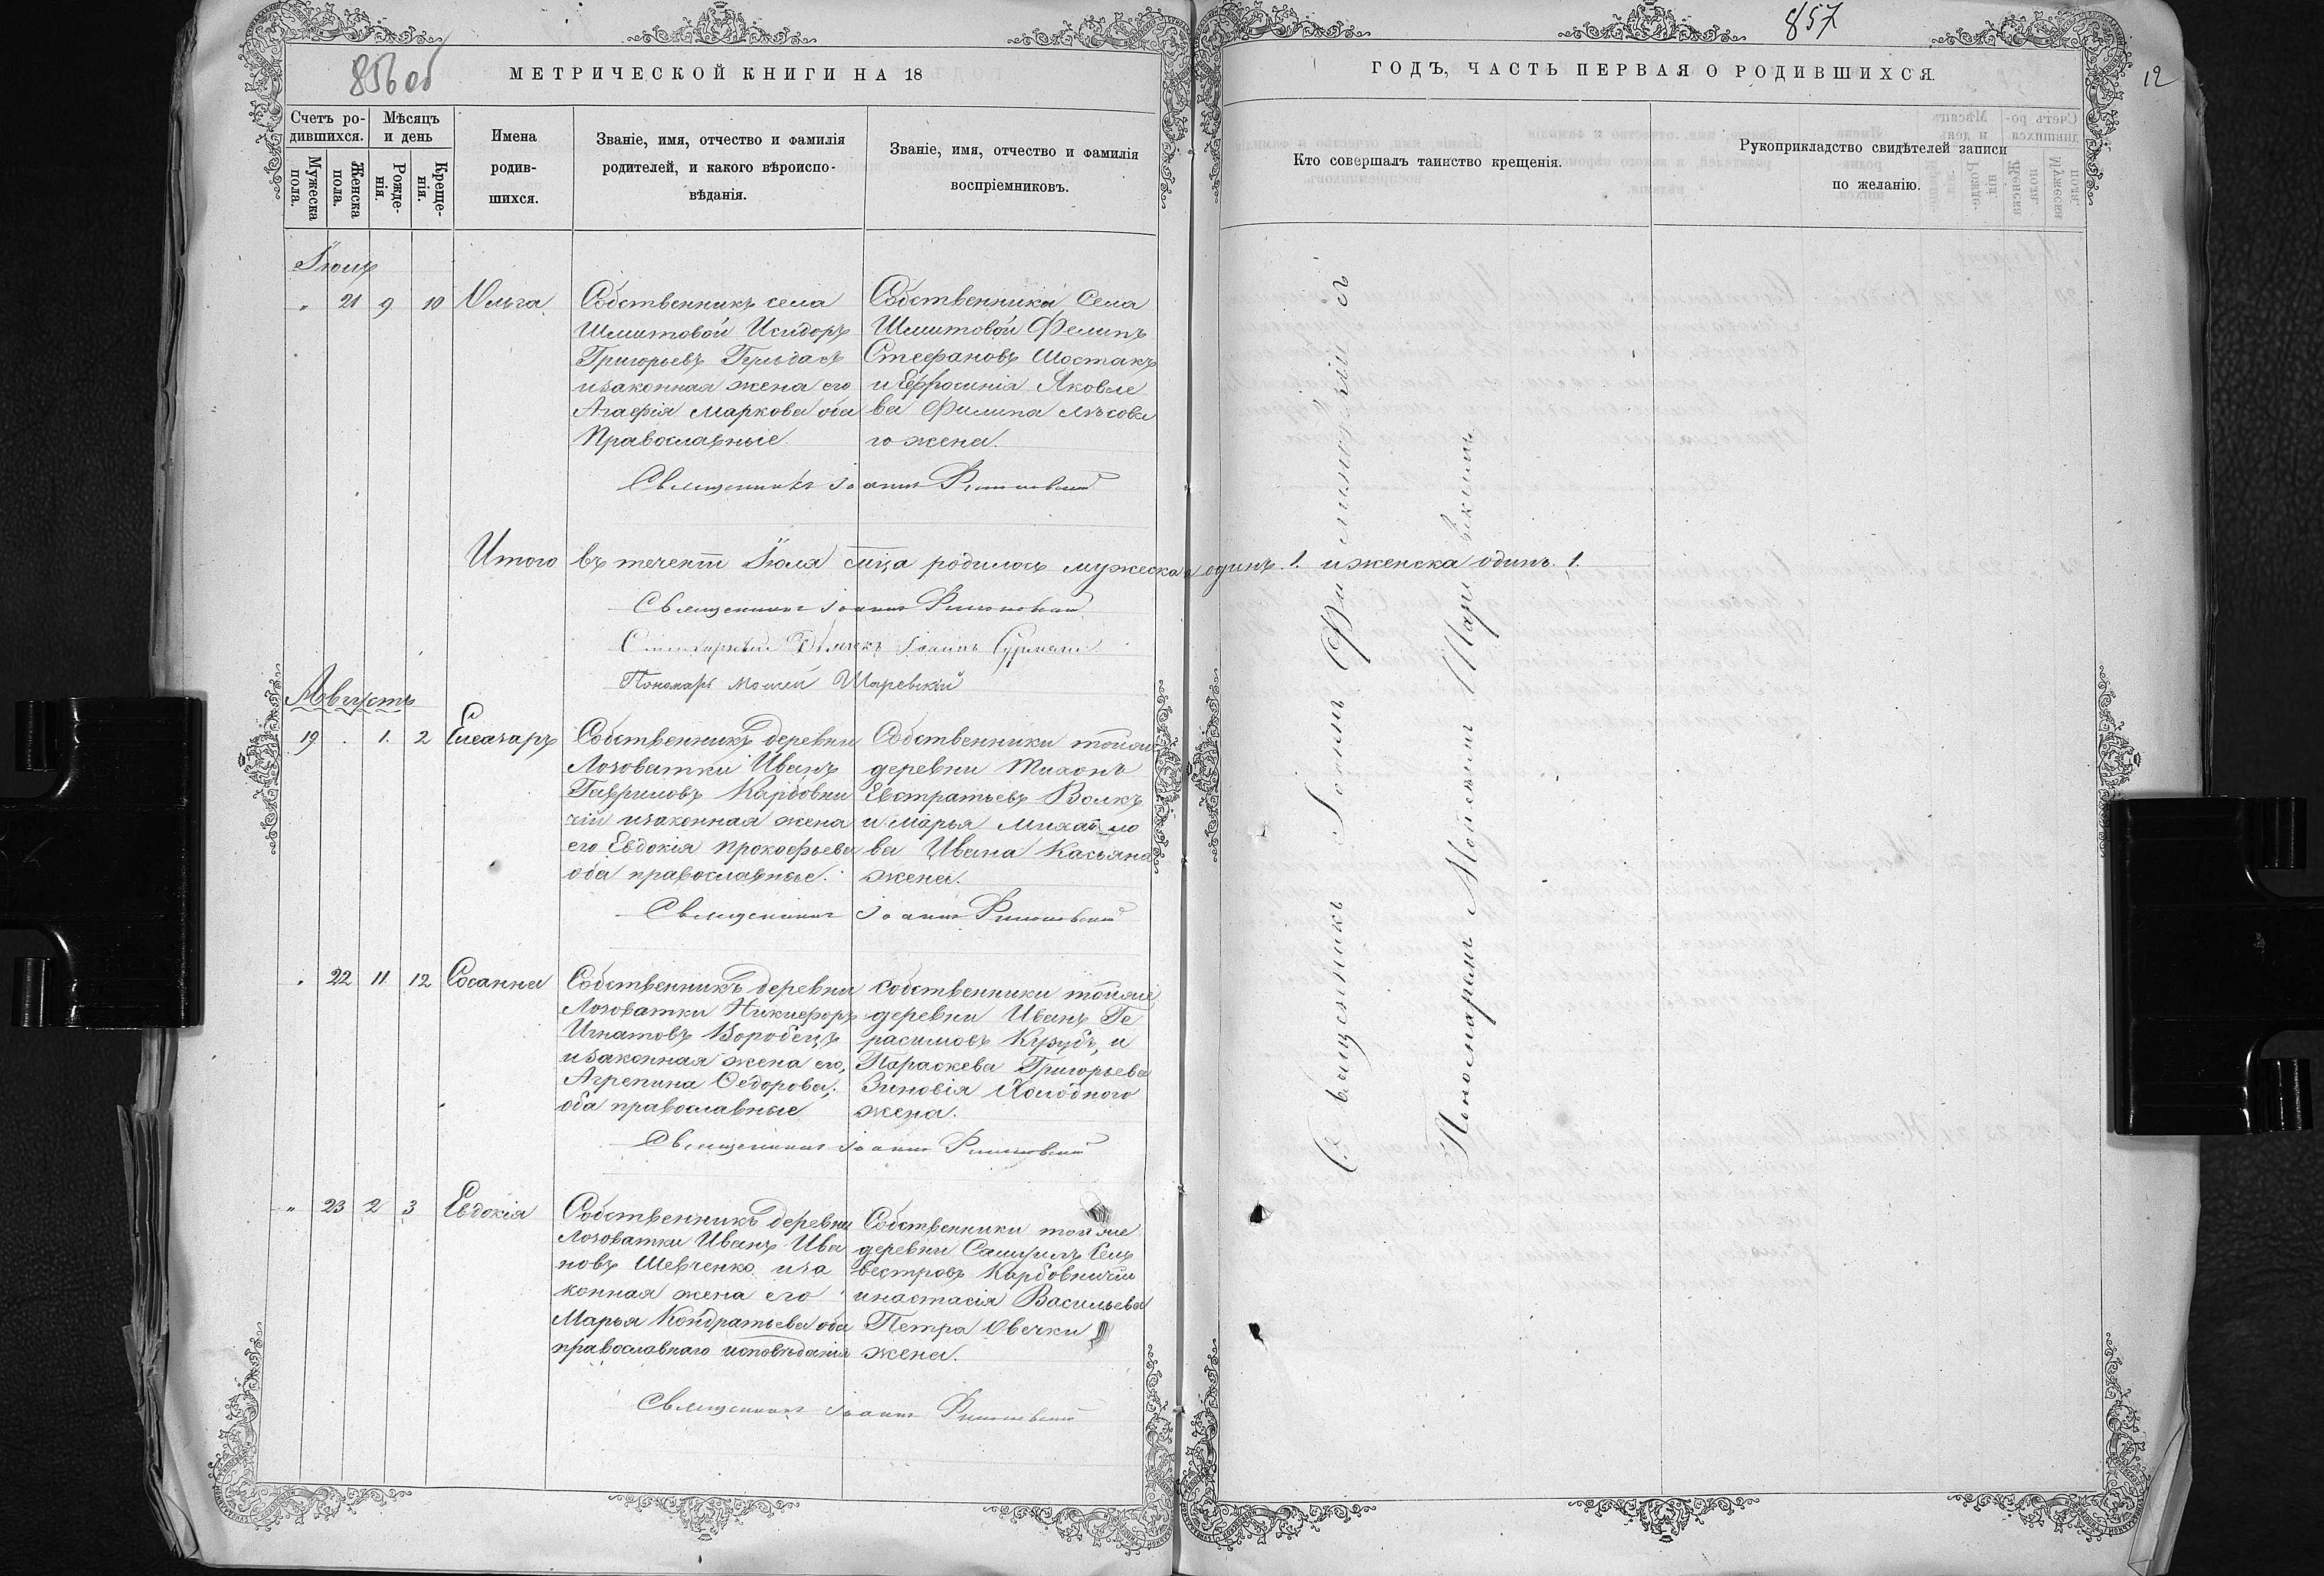 856 об
МЕТРИЧЕСКОЙ КНИГИ НА 18
Счетъ ро-
дившихся.
Мужеска
пола.
Женска
пола.
Мѣсяцъ
и день
Рожде-
нія.
Креще-
нія.
Имена
родив-
шихся.
Званіе, имя, отчество и фамилія
родителей, и какого вѣроиспо-
вѣданія.
Званіе, имя, отчество и фамилія
воспріемниковъ.
Іюль
„ 21 9 10 Ольга
Собственникъ села
Исидоръ
Григорьевъ
и законная жена его
Агафія Маркова оба
Православные.
Собственники Села
Филипъ
Стефановъ Шостакъ
и Ефросинія Яковле
ва Филипа Лѣсова
го жена.
Священникъ Іоаннъ
Итого въ теченіи Іюля мца родилось мужеска одинъ. 1. и женска одинъ. 1.
Священникъ Іоаннъ
Іоаннъ
Пономарь Моисей Шаревскій
Августъ
19 . 1. 2 Елеазаръ
Собственникъ деревни
Лозоватки Иванъ
Гавриловъ Карбовни
чій и законная жена
его Евдокія Прокофьева
оба православные.
Собственники тойже
деревни Тихонъ
Евстратьевъ Волкъ
и Марья Михайло
ва Ивана Касьяна
жена.
Священникъ Іоаннъ
. 22 11 12 Сосанна
Собственникъ деревни
Лозоватки Никифоръ
Игнатовъ Коробецъ
и законная жена его,
Агрепина Ѳедорова;
оба православные
Собственники тойже
деревни Иванъ Ге
расимовъ и
Параскева Григорьева
Зиновія Холодного
жена.
Священникъ Іоаннъ
„ 23 2 3 Евдокія
Собственникъ деревни
Лозоватки Иванъ Ива
новъ Шевченко и за
конная жена его
Марья Кондратьева оба
православнаго исповѣданія
Собственники тойже
деревни Самуилъ Сель
вестровъ Карбовничій
и настасія Васильева
Петра Овечки
жена.
Священникъ Іоаннъ
857
12
ГОДЪ, ЧАСТЬ ПЕРВАЯ О РОДИВШИХСЯ.
Кто совершалъ таинство крещенія.
Рукоприкладство свидѣтелей записи
по желанію.
Священникъ Іоаннъ
Пономаремъ Моисеемъ Шаревскимъ